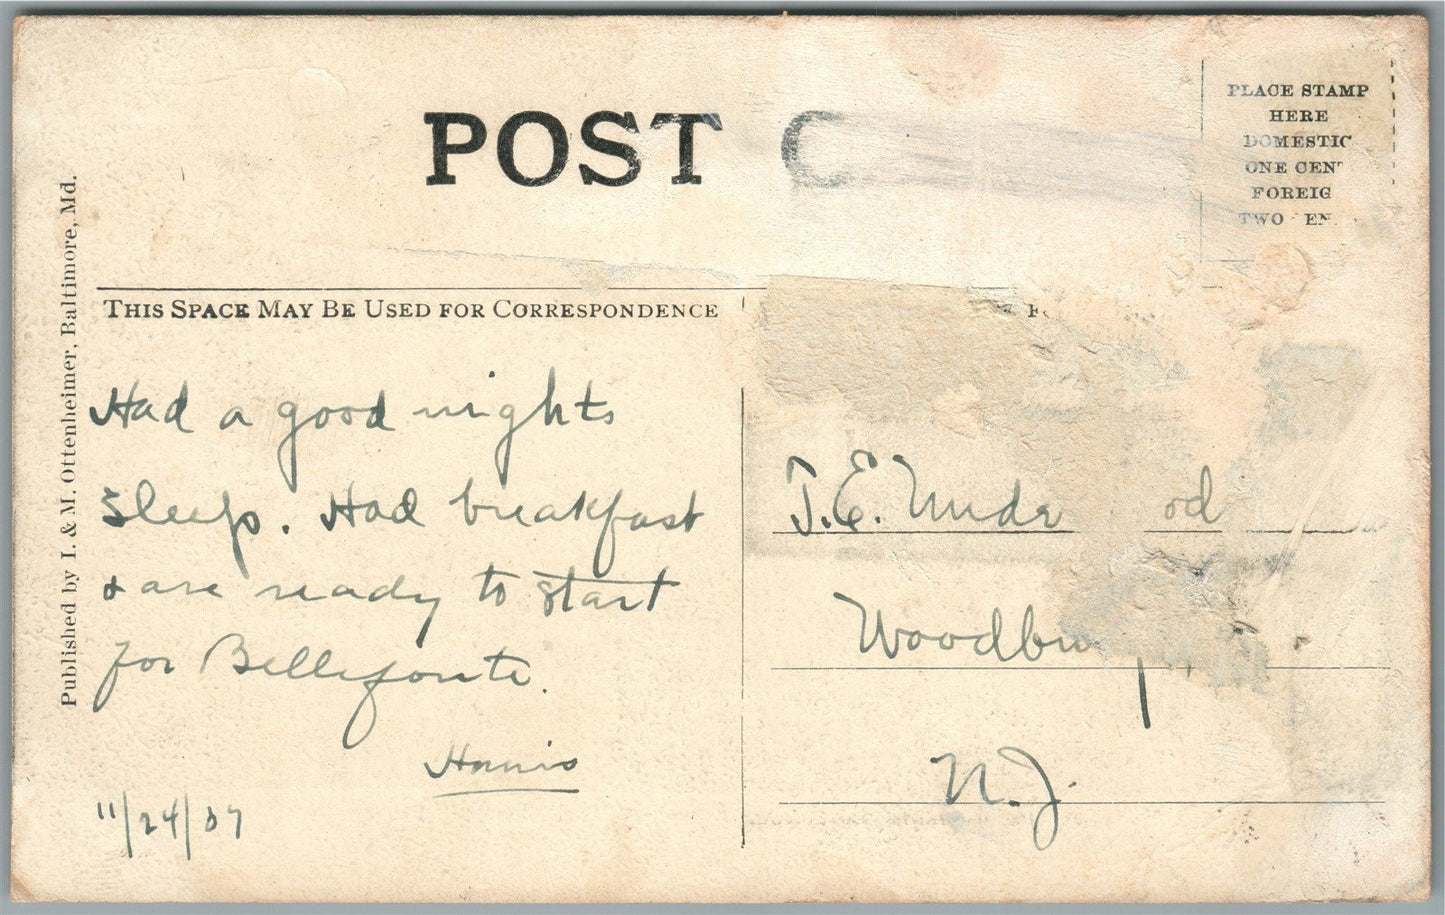 POST C
PLACE STAMP
HERE
DOMESTIC
ONE CENT
FOREIG
TWO EN
Published by I. & M. Ottenheimer, Baltimore, Md.
THIS SPACE MAY BE USED FOR CORRESPONDENCE
Had a good nights
sleep. Had breakfast
& are ready to start
for Bellefonte.
Harris
11/24/07
J. E. Under od
Woodbu y
N. J.